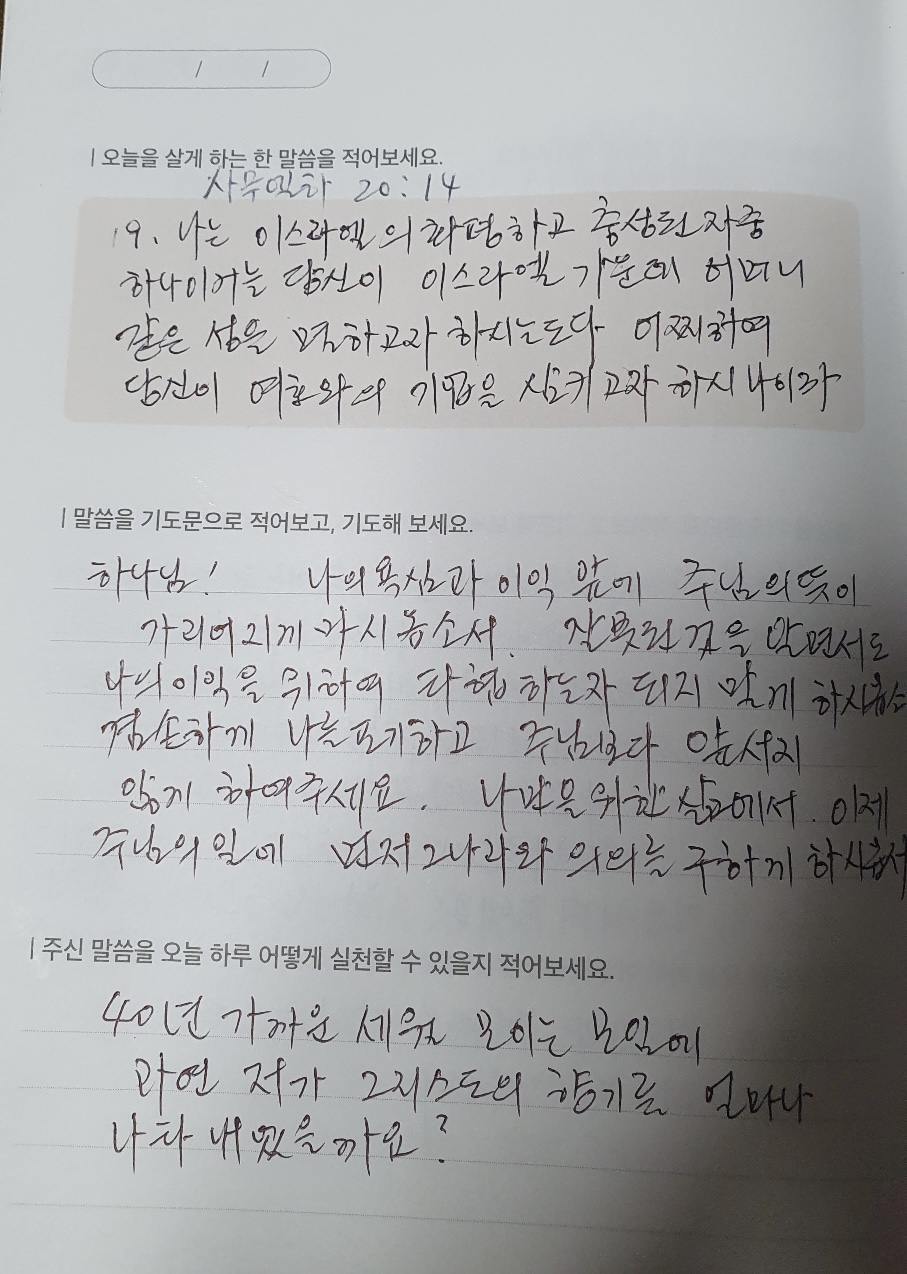 / /
| 오늘을 살게 하는 한 말씀을 적어보세요.
사무엘하 20:14
19. 나는 이스라엘의 화평하고 충성된 자중
하나이거늘 당신이 이스라엘 가운데 어머니
같은 성을 멸하고자 하시는도다 어찌하여
당신이 여호와의 기업을 삼키고자 하시나이까
| 말씀을 기도문으로 적어보고, 기도해 보세요.
하나님! 나의 욕심과 이익 앞에 주님의 뜻이
가리어지게 마시옵소서. 잘못된 것을 알면서도
나의 이익을 위하여 타협하는자 되지 말게 하시옵소
겸손하게 나를 포기하고 주님보다 앞서지
않게 하여주세요. 나만을 위한 삶에서. 이제
주님의 일에 먼저 그나라와 의의를 구하게 하시옵서
| 주신 말씀을 오늘 하루 어떻게 실천할 수 있을지 적어보세요.
40년 가까운 세월 모이는 모임에
과연 저가 그리스도의 향기를 얼마나
나타내었을까요?